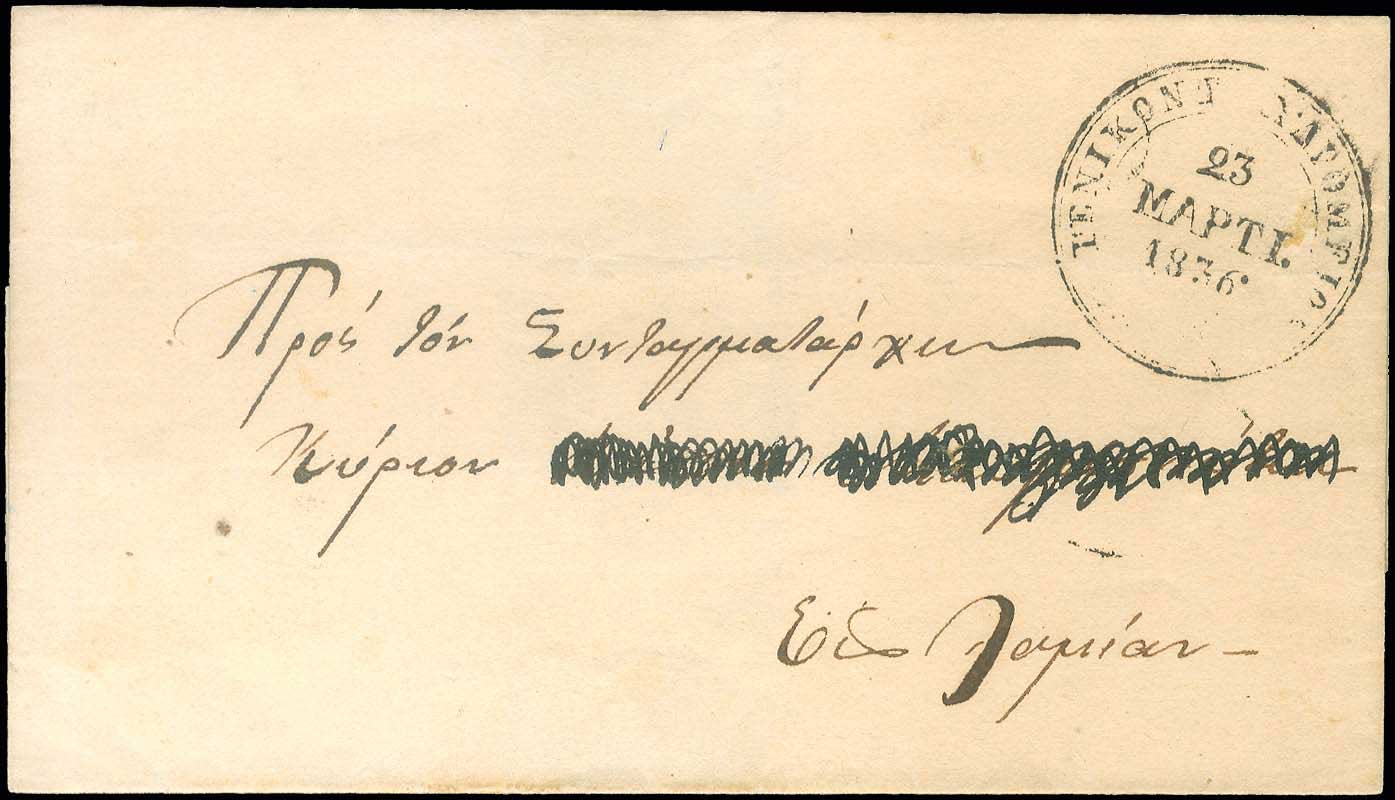 ΓΕΝΙΚΟΝ ΤΑΧΥΔΡΟΜΕΙΟΝ
23
ΜΑΡΤΙ.
1836·
Πρὸς τὸν Συνταγματάρχην
Κύριον
Εἰς Λαμίαν –